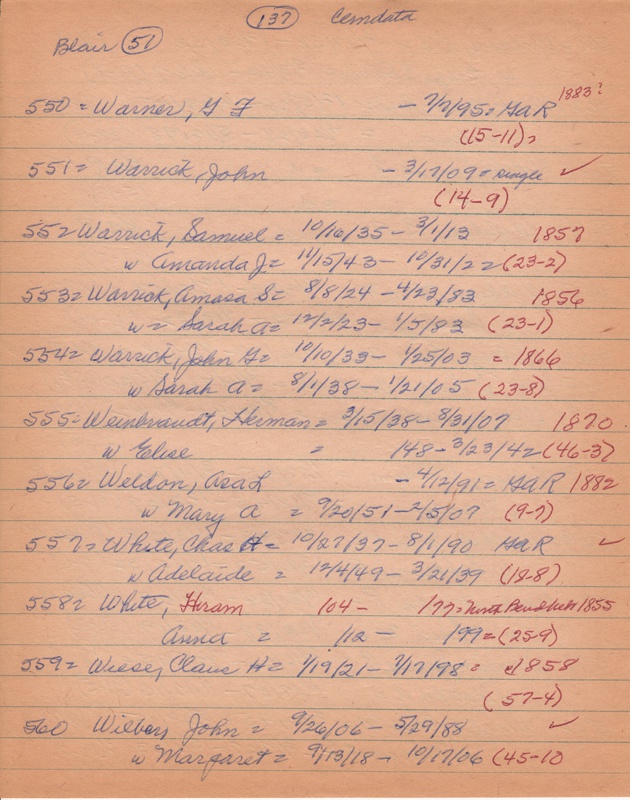 137 Cemdata
Blair 51
550 = Warner, G F - 7/2/95 = GAR 1883?
(15-11) =
551 = Warrick, John - 3/17/09 = single ✓
(14-9)
552 Warrick, Samuel = 10/16/35 - 3/1/13 1857
w Amanda J = 11/15/43 - 10/31/22 (23-2)
553 = Warrick, Amasa S = 8/8/24 - 4/23/83 1856
w = Sarah A = 12/2/23 - 1/5/83 (23-1)
554 = Warrick, John G = 10/10/33 - 1/25/03 = 1866
w Sarah A = 8/1/38 - 1/21/05 (23-8)
555 = Weinbrandt, Herman = 3/15/38 - 8/31/07 1870
w Elise = 148 - 3/23/42 (46-3)
556 = Weldon, Asa L - 4/12/91 = GAR 1882
w Mary A = 9/20/51 - 2/5/07 (9-7)
557 = White, Chas H = 10/27/37 - 8/1/90 GAR ✓
w Adelaide = 12/4/49 - 3/21/39 (18-8)
558 = White, Hiram 104 - 177 = North Bend 1855
Anna = 112 - 199 = (25-9)
559 = Wiese, Claus H = 1/19/21 - 7/17/98 = 1858
(57-4)
560 Wilbers, John = 9/26/06 - 5/29/88 ✓
w Margaret = 9/13/18 - 10/17/06 (45-10